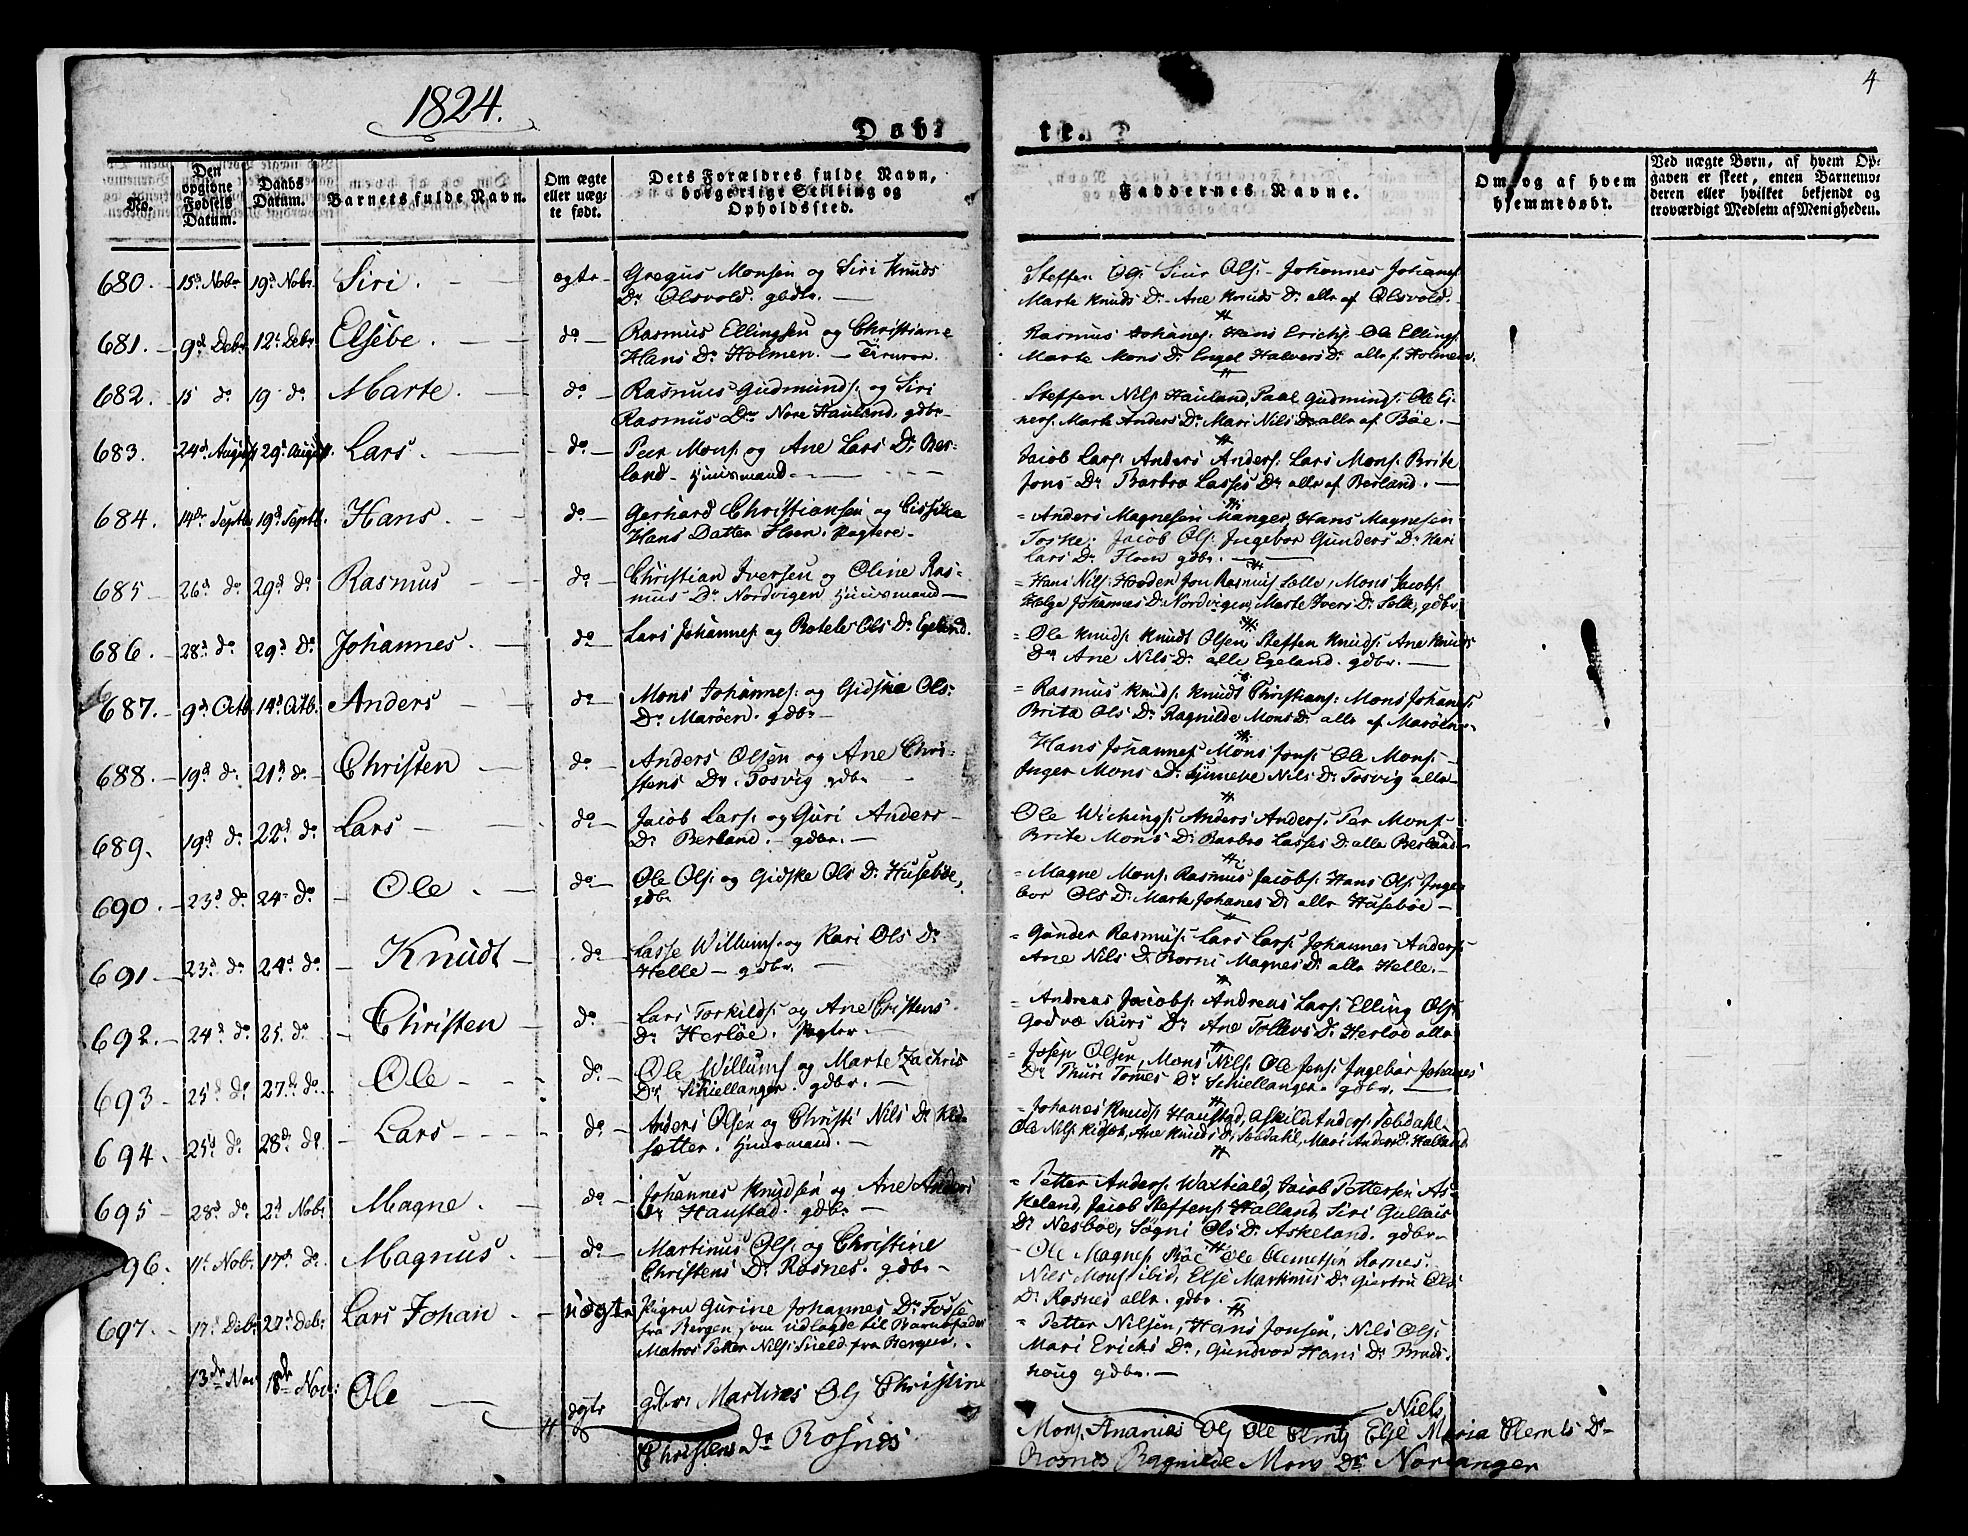 1824.
4
Døbte.
No.
Den opgivne Fødsels Datum.
Daabs Datum.
Barnets fulde Navn.
Om ægte eller uægte født.
Dets Forældres fulde Navn, borgerlige Stilling og Opholdssted.
Faddernes Navne.
Om og af hvem hjemmedøbt.
Ved uægte Børn, af hvem Opgaven er skeet, enten Barnemoderen eller hvilket bekjendt og troværdigt Medlem af Menigheden.
680. 15d. Nobr 19d. Nobr. Siri. ægte Gregus Monsen og Siri Knuds
Dr. Olsvold. gbdr.
Steffen Ols: Siur Ols: Johannes Johans:
Marte Knuds Dr. Ane Knuds Dr. alle af Olsvold.
681. 9d Debr 12t Debr Elsebe. do Rasmus Ellingsen og Christiane
Hans Dr. Holmen.
Rasmus Johans: Hans Erichs: Ole Ellings:
Marte Mons Dr. Engel Halvers Dr. alle f. Holmen.
682. 15 do 19 do Marte. do Rasmus Gudmunds: og Siri
Rasmus Dr. Nore Hauland. gdbr
Steffen Nils: Hauland, Paal Gudmunds: Ole Ei-
ners: Marte Anders Dr. Mari Nils Dr alle af Bøe.
683. 24d August 29d August. Lars. do Peer Mons: og Ane Lars Dr. Ber-
land. Huusmand.
Jacob Lars: Anders Anders: Lars Mons: Brite
Jons Dr Barbro Lasses Dr. alle af Berland.
684. 14de Septb 19d Septb. Hans. do Gerhard Christiansen og Cissilia
Hans Datter Floen. Pagtere.
Anders Magnesen Manger, Hans Magnesen
Toske. Jacob Ols: Ingebor Gunders Dr. Kari
Lars Dr Floen gdbr.
685 26d do 29d do Rasmus do Christian Iversen og Oline Ras-
mus Dr. Nordvigen Huusmand
Hans Nils: Hodden, Jon Rasmus: Sælle, Mons Jacobs:
Helge Johannes Dr. Nordvigen, Marte Ivers Dr. Selle, gdbr
686. 28d do 29d Do Johannes. do Lars Johannes: og Botele Ols Dr. Egeland.
Ole Knuds: Knudt Olsen, Steffen Knuds: Ane Knuds
Dr. Ane Nils Dr. alle Egeland. gdbr.
687. 9d Octb. 14d Octb. Anders do Mons Johannes: og Gidskie Ols:
Dr. Marøen. gdbr
Rasmus Knuds: Knudt Christians: Mons Johans:
Brita Ols Dr. Ragnilde Mons Dr. alle af Marøen
688. 19d d. 21d do Christen do Anders Olsen og Ane Chri-
stens Dr. Tosvig gdbr
Hans Johannes: Mons Jons: Ole Mons:
Inger Mons Dr. Synneve Nils Dr. Tosvig alle
689. 19d do 22d do Lars do Jacob Lars: og Guri Anders
Dr. Berland. gdbr.
Ole Wichings: Anders Anders: Per Mons:
Brite Mons Dr. Barbro Lasses Dr. alle Berland
690. 23d do 24 do Ole. do Ole Ols: og Gidske Ols Dr. Husebøe,
gdbr
Magne Mons: Rasmus Jacobs: Hans Ols: Inge-
bor Ols Dr. Marte Johanes Dr. alle Husebøe
691 23d do 24d do Knudt do Lasse Willums: og Kari Ols Dr.
Helle gdbr.
Gunder Rasmus: Lars Lars: Johannes Anders:
Ane Nils Dr. Borni Magnes Dr. alle Helle.
692. 24d do 25. do Christen do Lars Torkilds: og Ane Cristens
Dr. Herløe. Pagter.
Andreas Jacobs: Andreas Lars: Elling Ols:
Godvæ Siurs Dr. Ane Tollevs Dr. Herløe alle
693 25d do 27de do Ole do Ole Willums og Marte Zachris
Dr. Schiellanger. gdbr.
Josep Olsen, Mons Nils: Ole Jens: Ingebor Johanes
Dr Thuri Tomes Dr. Schiellanger. gdbr.
694. 25d do 28de do. Lars do Anders Olsen og Christi Nils Dr.
sætter. Huusmand.
Johanes Knuds: Haustad, Askild Anders: Sæbdahl
Ole Nils: Ane Knuds Dr. Sæbdahl, Mari Anders Dr. Halland
695 28d do 2d Nobr Magne. do Johannes Knudsen og Ane Anders
Dr Haustad. gdbr
Petter Anders: Waxtiald, Jacob Pettersen As-
keland, Jacob Steffens: Holland, Siri Gullais
Dr. Nesbøe, Søgni Ols Dr. Askeland. gdbr
696. 11t Nobr. 17de do. Magnus. do Martinus Ols: og Christine
Christens Dr. Rosnes. gdbr
Ole Magnes: Bøe Ole Clemetsen Rosnes.
Niels Mons: ibid, Else Martinus Dr. Giertrū Ols
Dr. Rosnes alle. gdbr.
697. 17d Debr 27d Debr Lars Johan uægte Pigen Gurine Johannes Dr. Fosse
fra Bergen, som udlagde til Barnefader
Matros Petter Nils: Sneld. fra Bergen.
Petter Nilsen, Hans Jonsen, Nils Ols:
Mari Erichs Dr., Gundvor Hans Dr. Brads-
houg gdbr.
13de Nov 18de Nov: Ole ægte gdbr: Martines Ols Christine
Christens dr Rosnes
Niels
Mons, Ananias Ols Ole Clemts Else Maria Clemts Dr
Rosnes Ragnilde Mons Dr Noranger